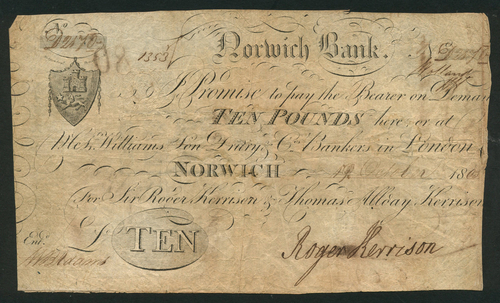 1353 Norwich Bank.
I Promise to pay the Bearer on Demand
TEN POUNDS here, or at
Williams Son Drury, & Co. Bankers in London
NORWICH
For Sir Roger Kerrison & Thomas Allday Kerrison
TEN
Roger Kerrison
Ent.